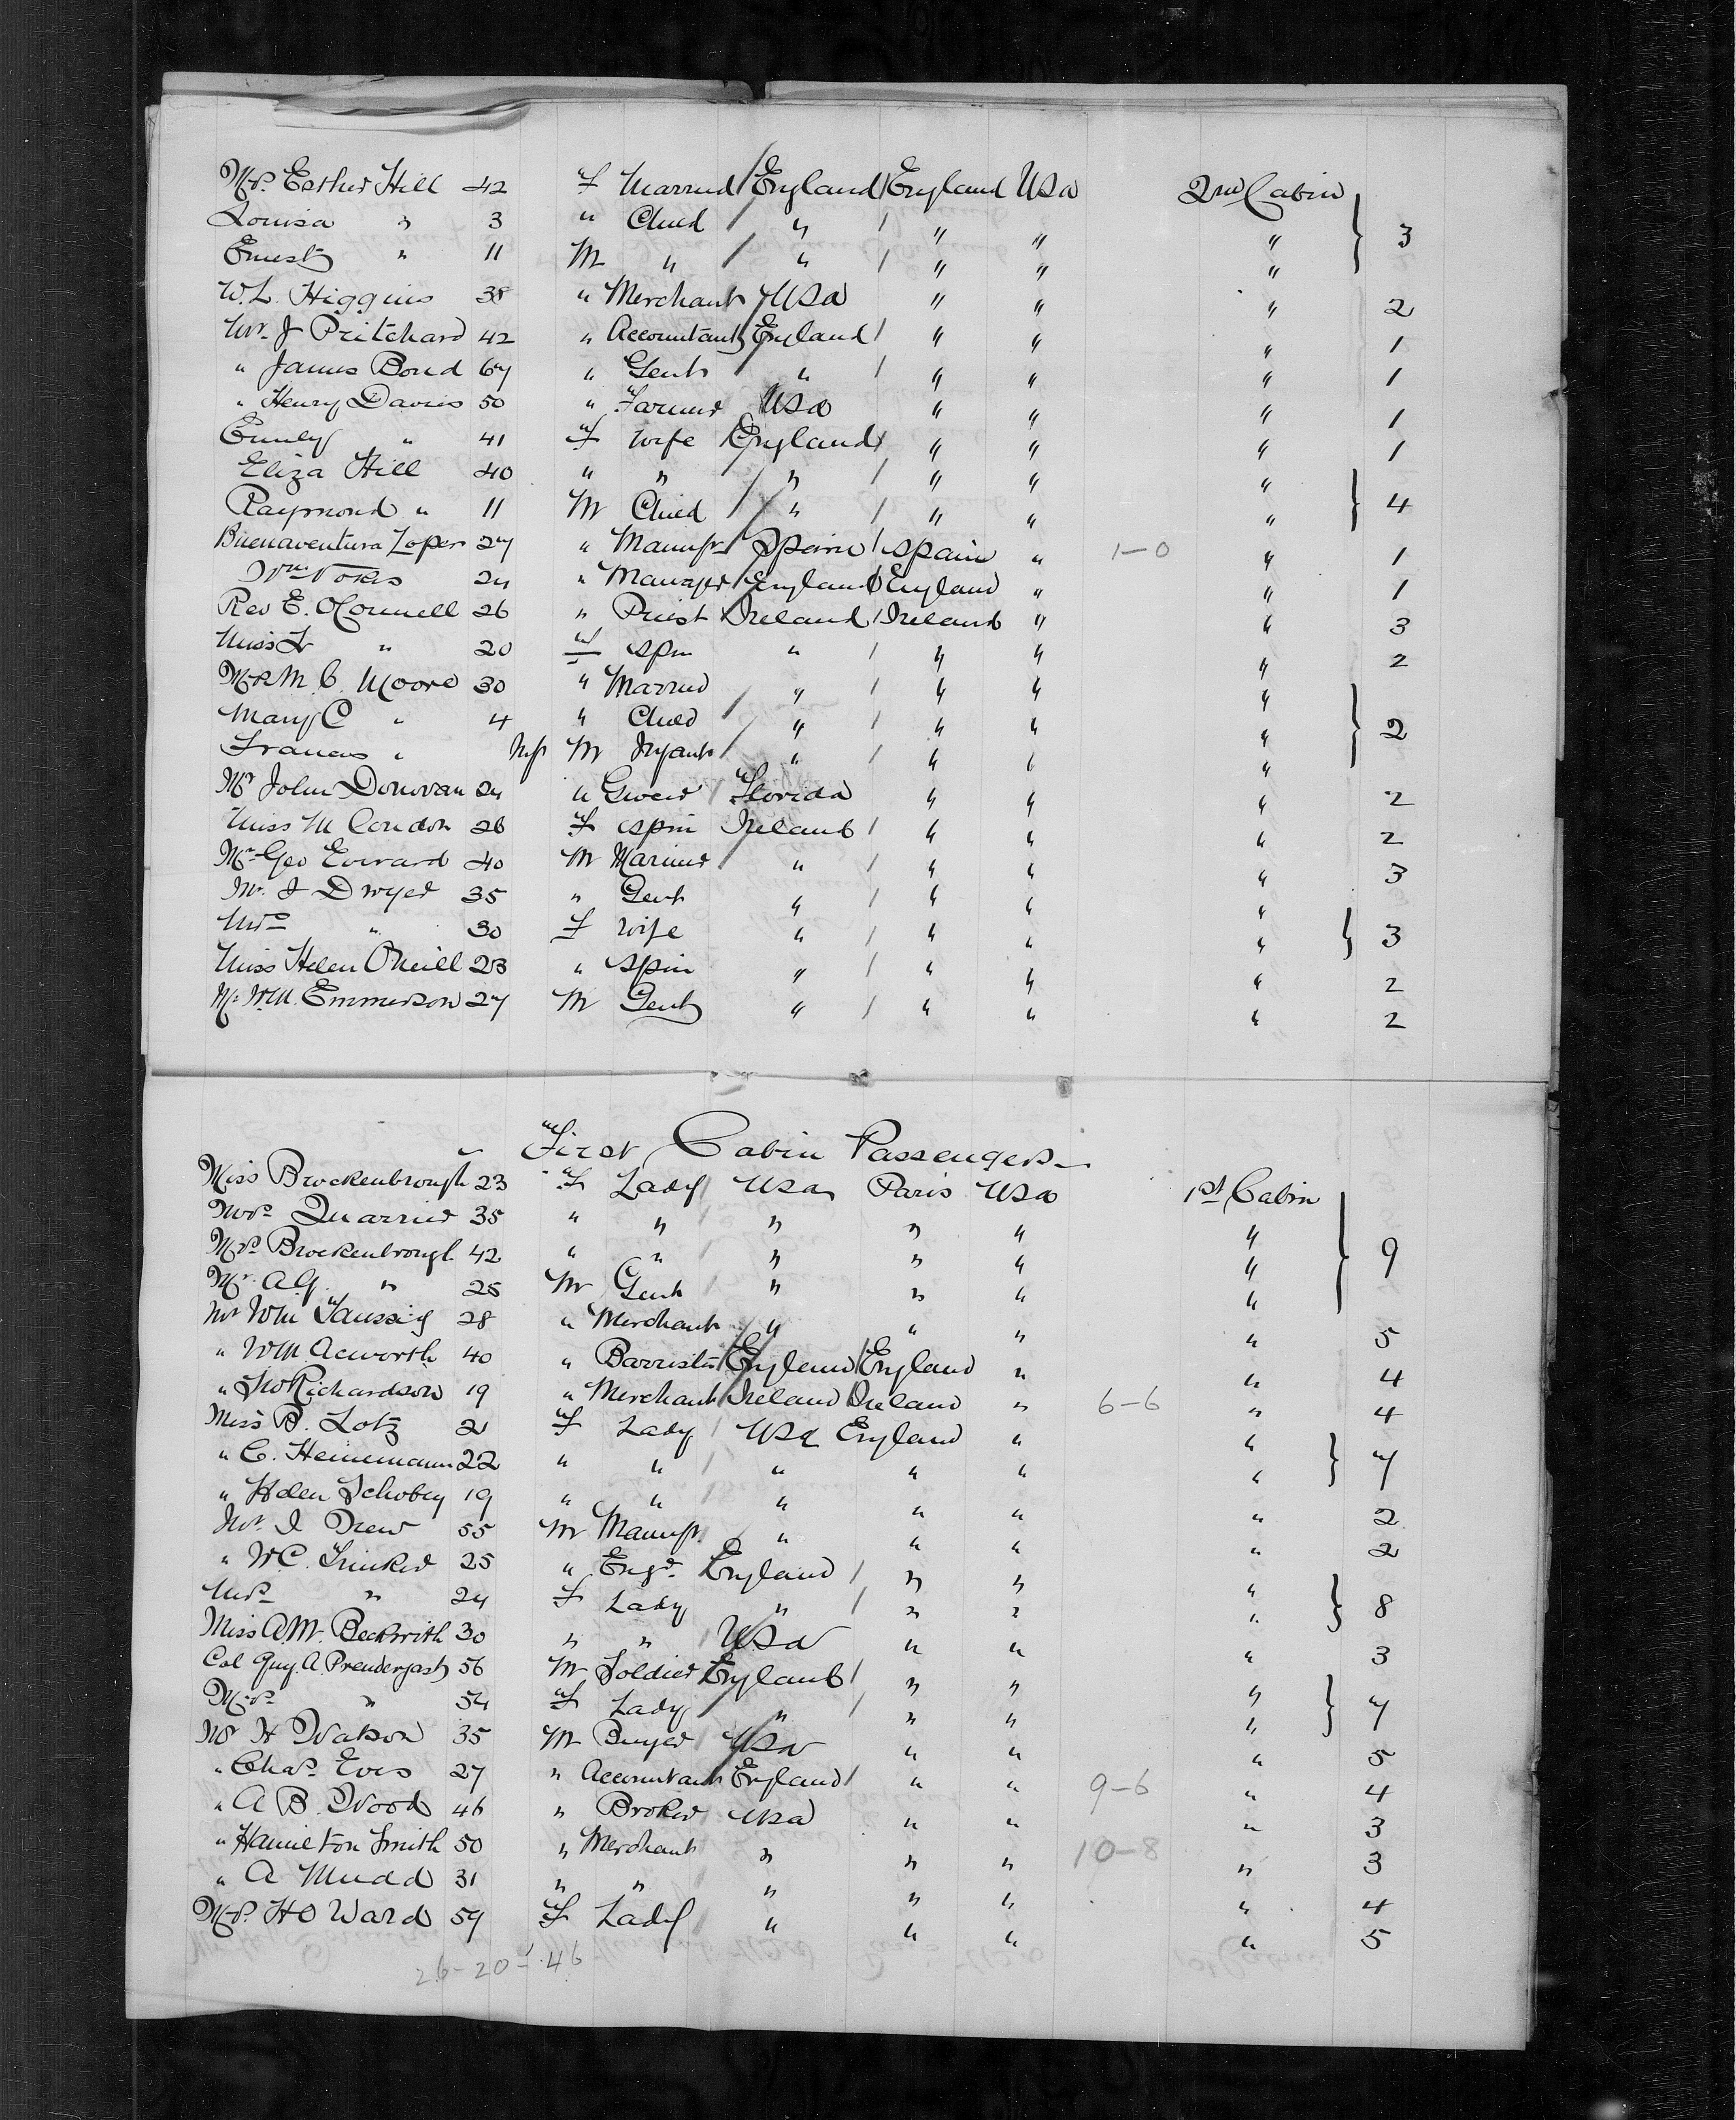 Mrs. Esther Hill 42 F Married England England USa 2nd Cabin
Louisa " 3 " Child " " " " 3
Ernest " 11 M " " " " "
W. L. Higgins 38 " Merchant USa " " " 2
Mr. J Pritchard 42 " Accountant England " " " 1
" James Bond 67 " Gent " " " " 1
" Henry Davies 50 " Farmer USa " " " 1
Emily " 41 F Wife England " " " 1
Eliza Hill 40 " " " " " "
Raymond " 11 M Child " " " " 4
Buenaventura Lopez 27 " Manufr Spain Spain " 1-0 " 1
Wm Vokes 24 " Manager England England " " 1
Rev E. OConnell 26 " Priest Ireland Ireland " " 3
Miss " 20 F spin " " " " 2
Mrs M. C. Moore 30 " Married " " " "
Mary C " 4 " Child " " " " 2
Frances " Inf M Infant " " " "
Mr John Donovan 24 " Florida " " " 2
Miss M Condon 26 F spin Ireland " " " 2
Mr Geo Everard 40 M Mariner " " " " 3
Mr. J Dwyer 35 " Gent " " " "
Mrs " 30 F Wife " " " " 3
Miss Helen ONeill 23 " Spin " " " " 2
Mr Wm. Emmerson 27 M Gent " " " " 2
First Cabin Passengers
Miss Brockenbrough 23 F Lady USa Paris USa 1st Cabin
Mrs Quarrier 35 " " " " " "
Mrs Brockenbrough 42 " " " " " " 9
Mr. A. G. " 25 M Gent " " " "
Mr Wm Taussig 28 " Merchant " " " " 5
" WM. Acworth 40 " Barrister England England " " 4
" Richardson 19 " Merchant Ireland Ireland " 6-6 " 4
Miss B. Lotz 21 F Lady USa England " "
" C. Heinemann 22 " " " " " " 7
" Helen 19 " " " " " " 2
Mr. I Drew 55 M Manufr. " " " " 2
" W. C. Trinker 25 " Engr. England " " "
Mrs " 24 F Lady " " " " 8
Miss A. M. Beckwith 30 " " USa " " " 3
Col Guy. A. Prendergast 56 M Soldier England " " "
Mrs " 54 F Lady " " " " 7
Mr H Watson 35 M Buyer USa " " " 5
" Chas. Eves 27 " Accountant England " " 9-6 " 4
" A. B. Wood 46 " Broker USa " " " 3
" Hamilton Smith 50 " Merchant " " " 10-8 " 3
" A Mudd 31 " " " " " " 4
Mrs. H O Ward 59 F Lady " " " " 5
26-20-46